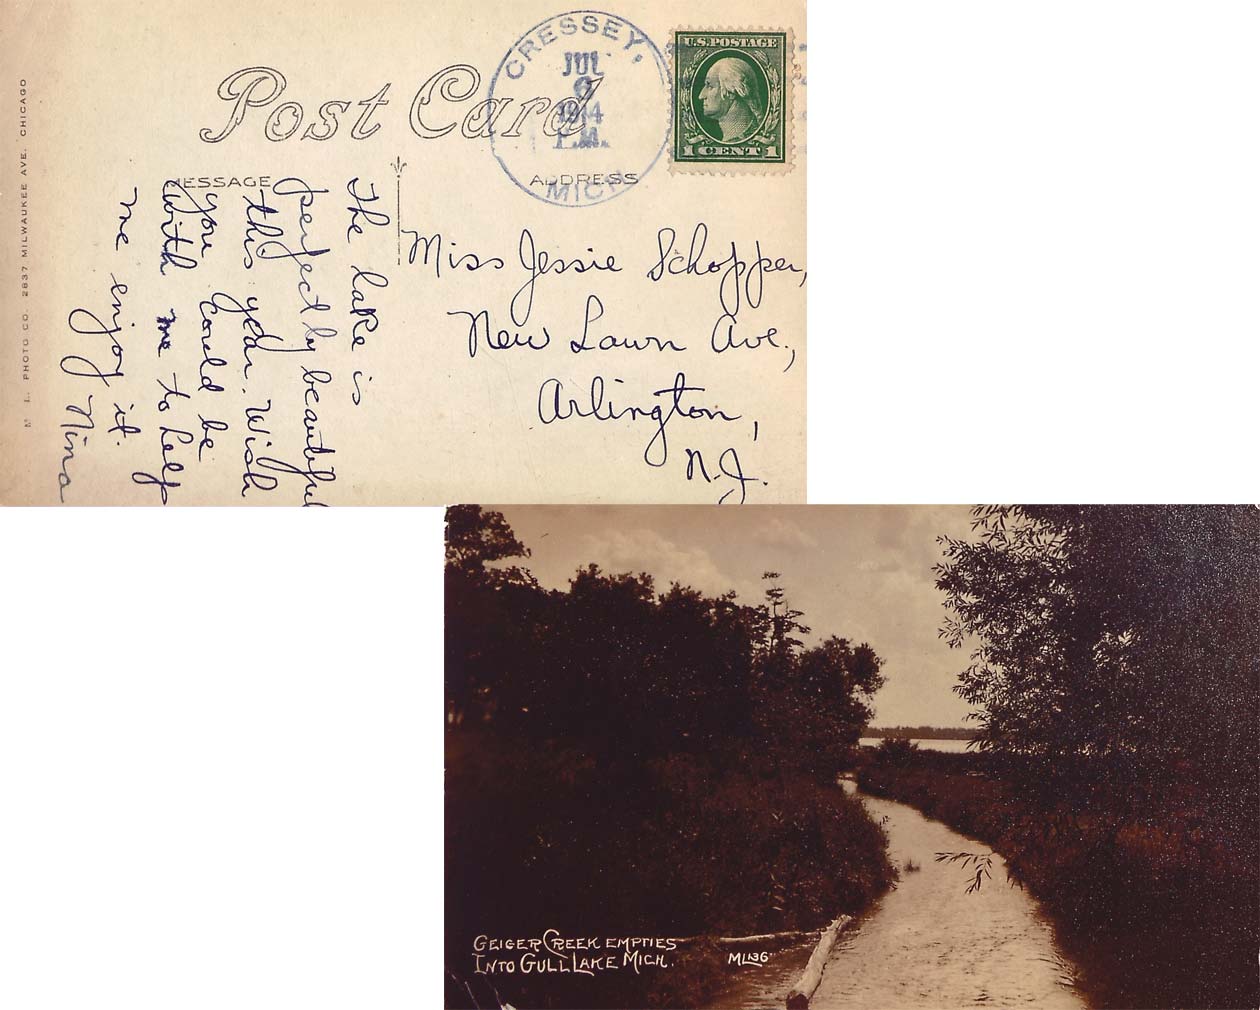 M. L. PHOTO CO. 2837 MILWAUKEE AVE. CHICAGO
Post Card
CRESSEY,
JUL
6
1914
P.M.
MICH
U.S. POSTAGE
1 CENT 1
MESSAGE
ADDRESS
The lake is
perfectly beautiful
this year. Wish
you could be
with me to help
me enjoy it.
Nina
Miss Jessie Schopper,
New Lawn Ave.,
Arlington,
N.J.
GEIGER CREEK EMPTIES
INTO GULL LAKE MICH.
ML136